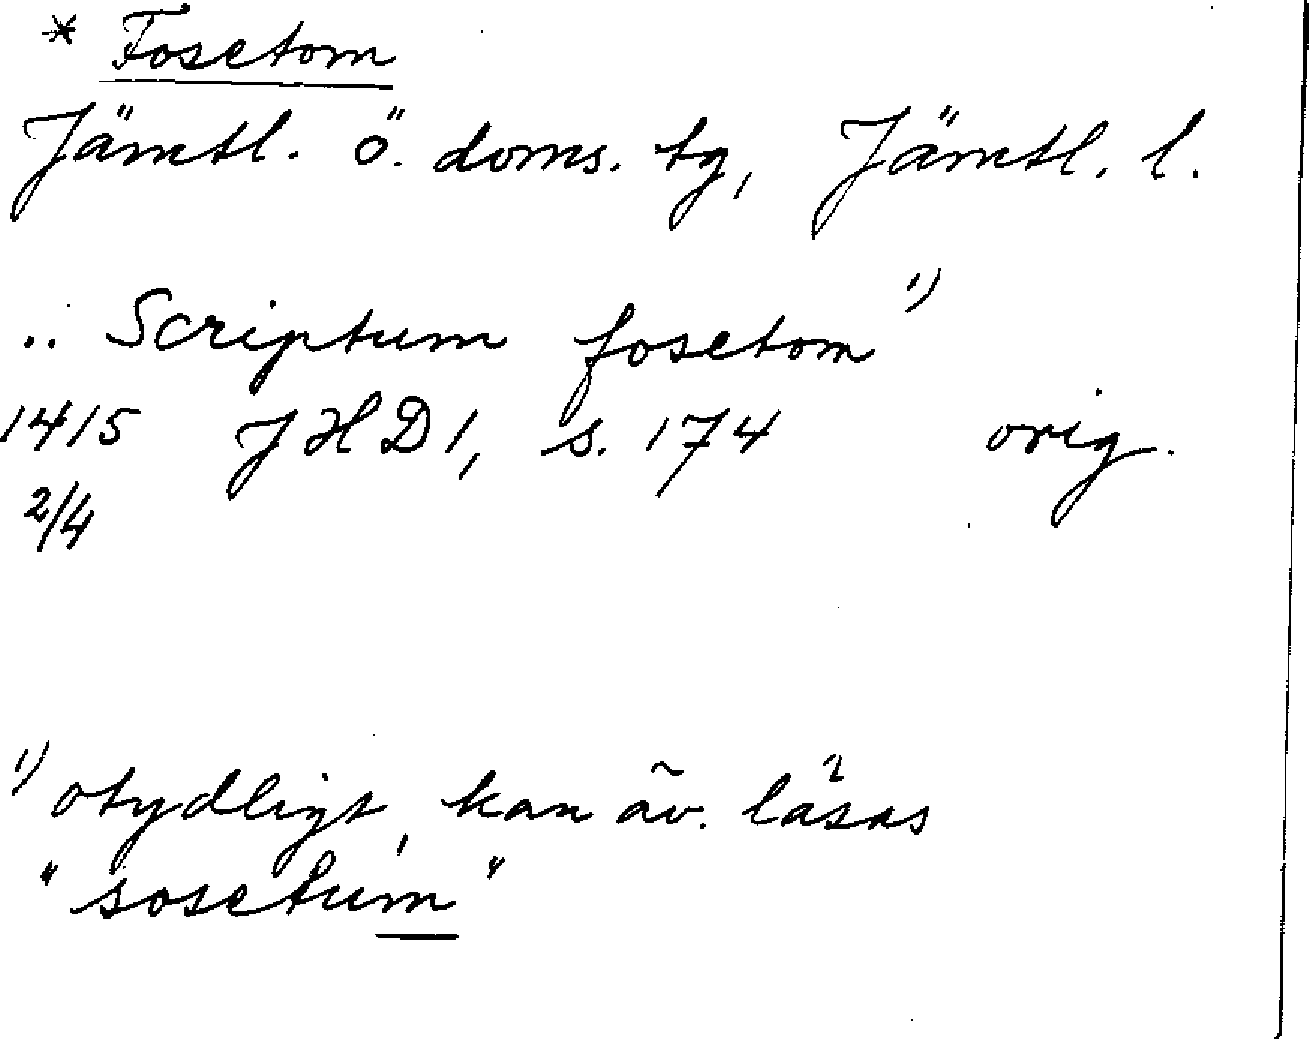 * Fosetom
Jämtl. ö. doms. tg, Jämtl. l.
.. Scriptum fosetom 1)
1415 JHD 1, s. 174 orig.
2/4
1) otydligt, kan äv. läsas
"sosetum"